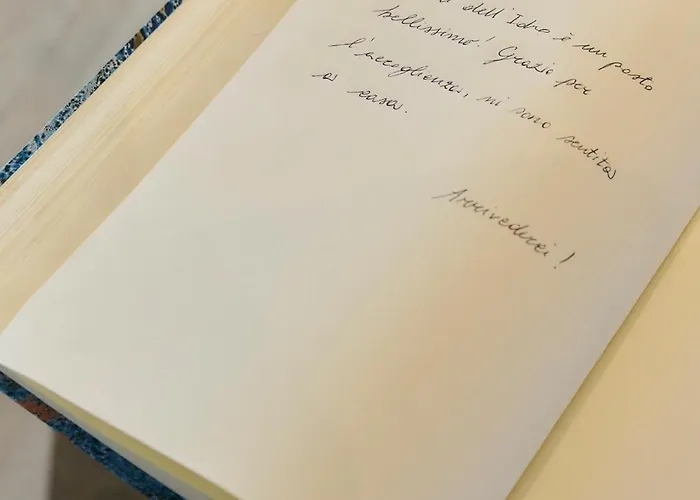 dell'Idro è un posto
bellissimo! Grazie per
l'accoglienza, mi sono sentita
a casa.
Arrivederci!